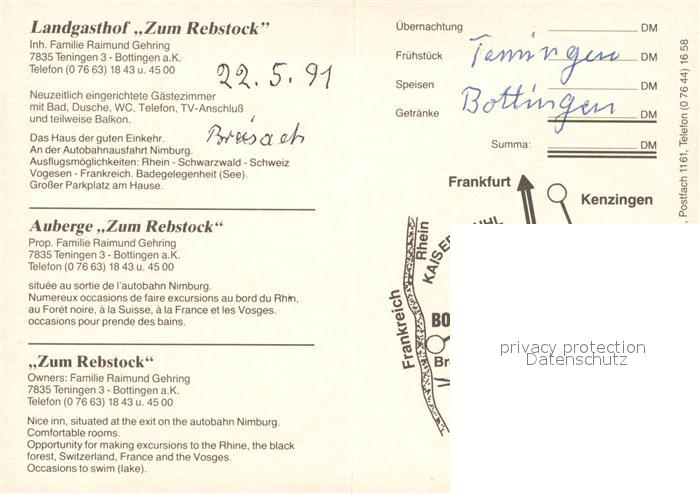 Landgasthof „Zum Rebstock"
Inh. Familie Raimund Gehring
7835 Teningen 3 - Bottingen a.K.
Telefon (0 76 63) 18 43 u. 45 00
22.5.91
Neuzeitlich eingerichtete Gästezimmer
mit Bad, Dusche, WC, Telefon, TV-Anschluß
und teilweise Balkon.
Breisach
Das Haus der guten Einkehr.
An der Autobahnausfahrt Nimburg.
Ausflugsmöglichkeiten: Rhein - Schwarzwald - Schweiz
Vogesen - Frankreich. Badegelegenheit (See).
Großer Parkplatz am Hause.
Auberge „Zum Rebstock"
Prop. Familie Raimund Gehring
7835 Teningen 3 - Bottingen a.K.
Telefon (0 76 63) 18 43 u. 45 00
située au sortie de l'autobahn Nimburg.
Numereux occasions de faire excursions au bord du Rhin,
au Forét noire, à la Suisse, à la France et les Vosges.
occasions pour prende des bains.
„Zum Rebstock"
Owners: Familie Raimund Gehring
7835 Teningen 3 - Bottingen a.K.
Telefon (0 76 63) 18 43 u. 45 00
Nice inn, situated at the exit on the autobahn Nimburg.
Comfortable rooms.
Opportunity for making excursions to the Rhine, the black
forest, Switzerland, France and the Vosges.
Occasions to swim (lake).
Übernachtung DM
Frühstück DM
Teningen
Speisen DM
Bottingen
Getränke DM
Summa: DM
Frankfurt
Kenzingen
Rhein
KAISERSTUHL
Frankreich
BO
Br
, Postfach 1161, Telefon (0 76 44) 16 58
privacy protection
Datenschutz